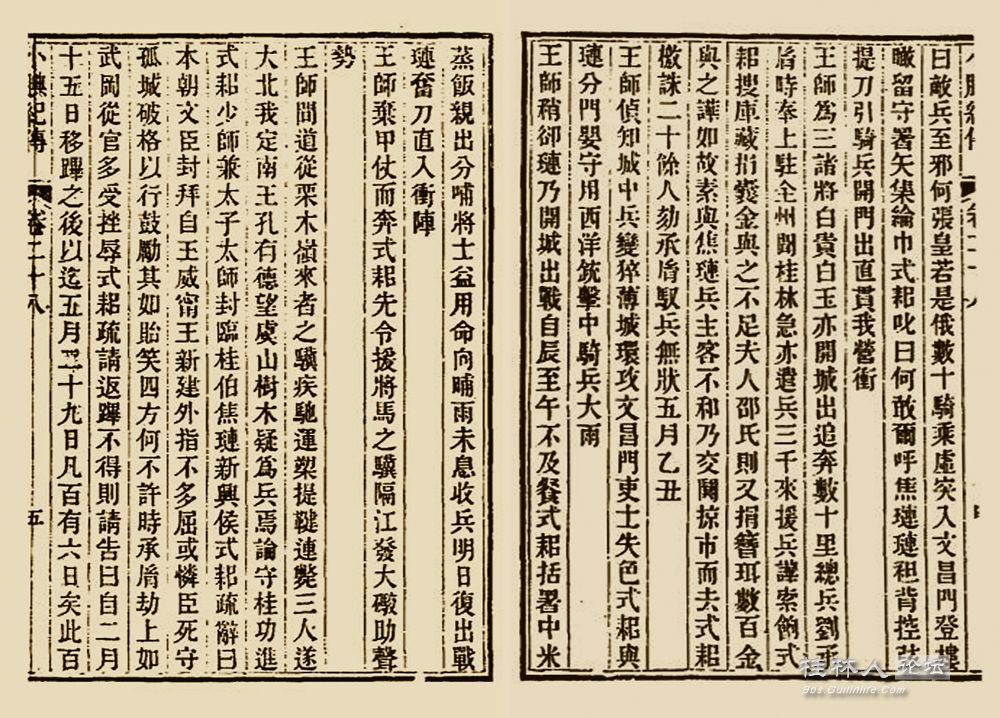 曰敵兵至邪何張皇若是俄數十騎乘虛突入文昌門登樓
瞰留守署矢集綸巾式耜叱曰何敢爾呼焦璉璉袒背控弦
提刀引騎兵開門出直貫我營衝
王師為三諸將白貴白玉亦開城出追奔數十里總兵劉承
胤時奉上駐全州聞桂林急亦遣兵三千來援兵譁索餉式
耜搜庫藏捐囊金與之不足夫人邵氏則又捐簪珥數百金
與之譁如故素與焦璉兵主客不和乃交鬨掠市而去式耜
檄誅二十餘人劾承胤馭兵無狀五月乙丑
王師偵知城中兵變猝薄城環攻文昌門吏士失色式耜與
璉分門嬰守用西洋銃擊中騎兵大雨
王師稍卻璉乃開城出戰自辰至午不及餐式耜括署中米
蒸飯親出分哺將士益用命向晡雨未息收兵明日復出戰
璉奮刀直入衝陣
王師棄甲仗而奔式耜先令援將馬之驥隔江發大礮助聲
勢
王師間道從栗木嶺來者之驥疾馳運槊提鞬連斃三人遂
大北我定南王孔有德望虞山樹木疑為兵焉論守桂功進
式耜少師兼太子太師封臨桂伯焦璉新興侯式耜疏辭曰
本朝文臣封拜自王威甯王新建外指不多屈或憐臣死守
孤城破格以行鼓勵其如貽笑四方何不許時承胤劫上如
武岡從官多受挫辱式耜疏請返蹕不得則請告曰自二月
十五日移蹕之後以迄五月二十九日凡百有六日矣此百
小腆紀傳 卷二十八 五
桂林人论坛
Bbs.Guilinlife.com